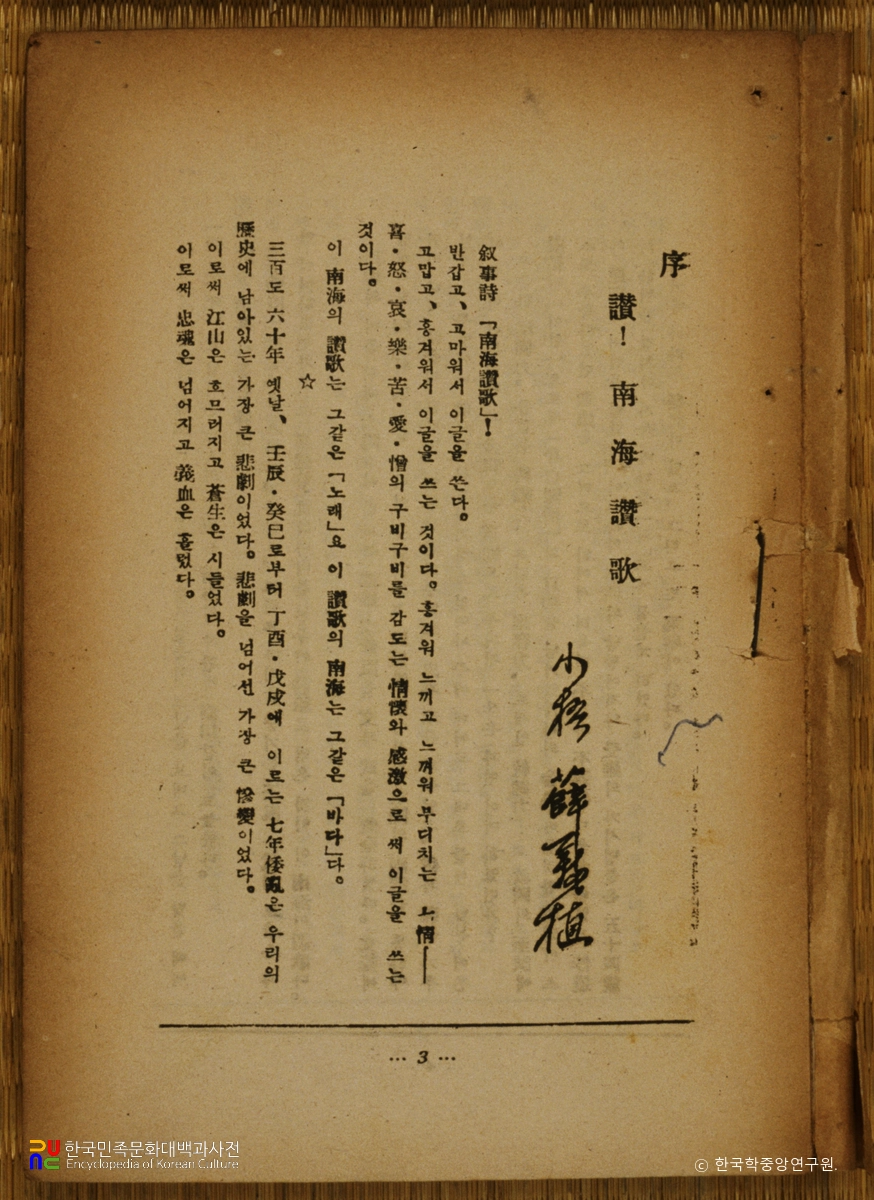 序
讃！ 南海讃歌
小梧 薛義植
叙事詩 「南海讃歌」！
반갑고、고마워서 이글을 쓴다。
고맙고、흥겨워서 이글을 쓰는 것이다。흥겨워 느끼고 느껴워 부디치는 情──
喜·怒·哀·樂·苦·愛·憎의 구비구비를 감도는 情懷와 感激으로 써 이글을 쓰는
것이다。
이 南海의 讃歌는 그같은「노래」요 이 讃歌의 南海는 그같은「바다」다。
☆
三百도 六十年 옛날、壬辰·癸巳로부터 丁酉·戊戌에 이르는 七年倭亂은 우리의
歷史에 남아있는 가장 큰 悲劇이었다。悲劇을 넘어선 가장 큰 慘變이었다。
이로써 江山은 흐므러지고 蒼生은 시들었다。
이로써 忠魂은 넘어지고 義血은 흘렀다。
… 3 …
한국민족문화대백과사전
Encyclopedia of Korean Culture
ⓒ 한국학중앙연구원.